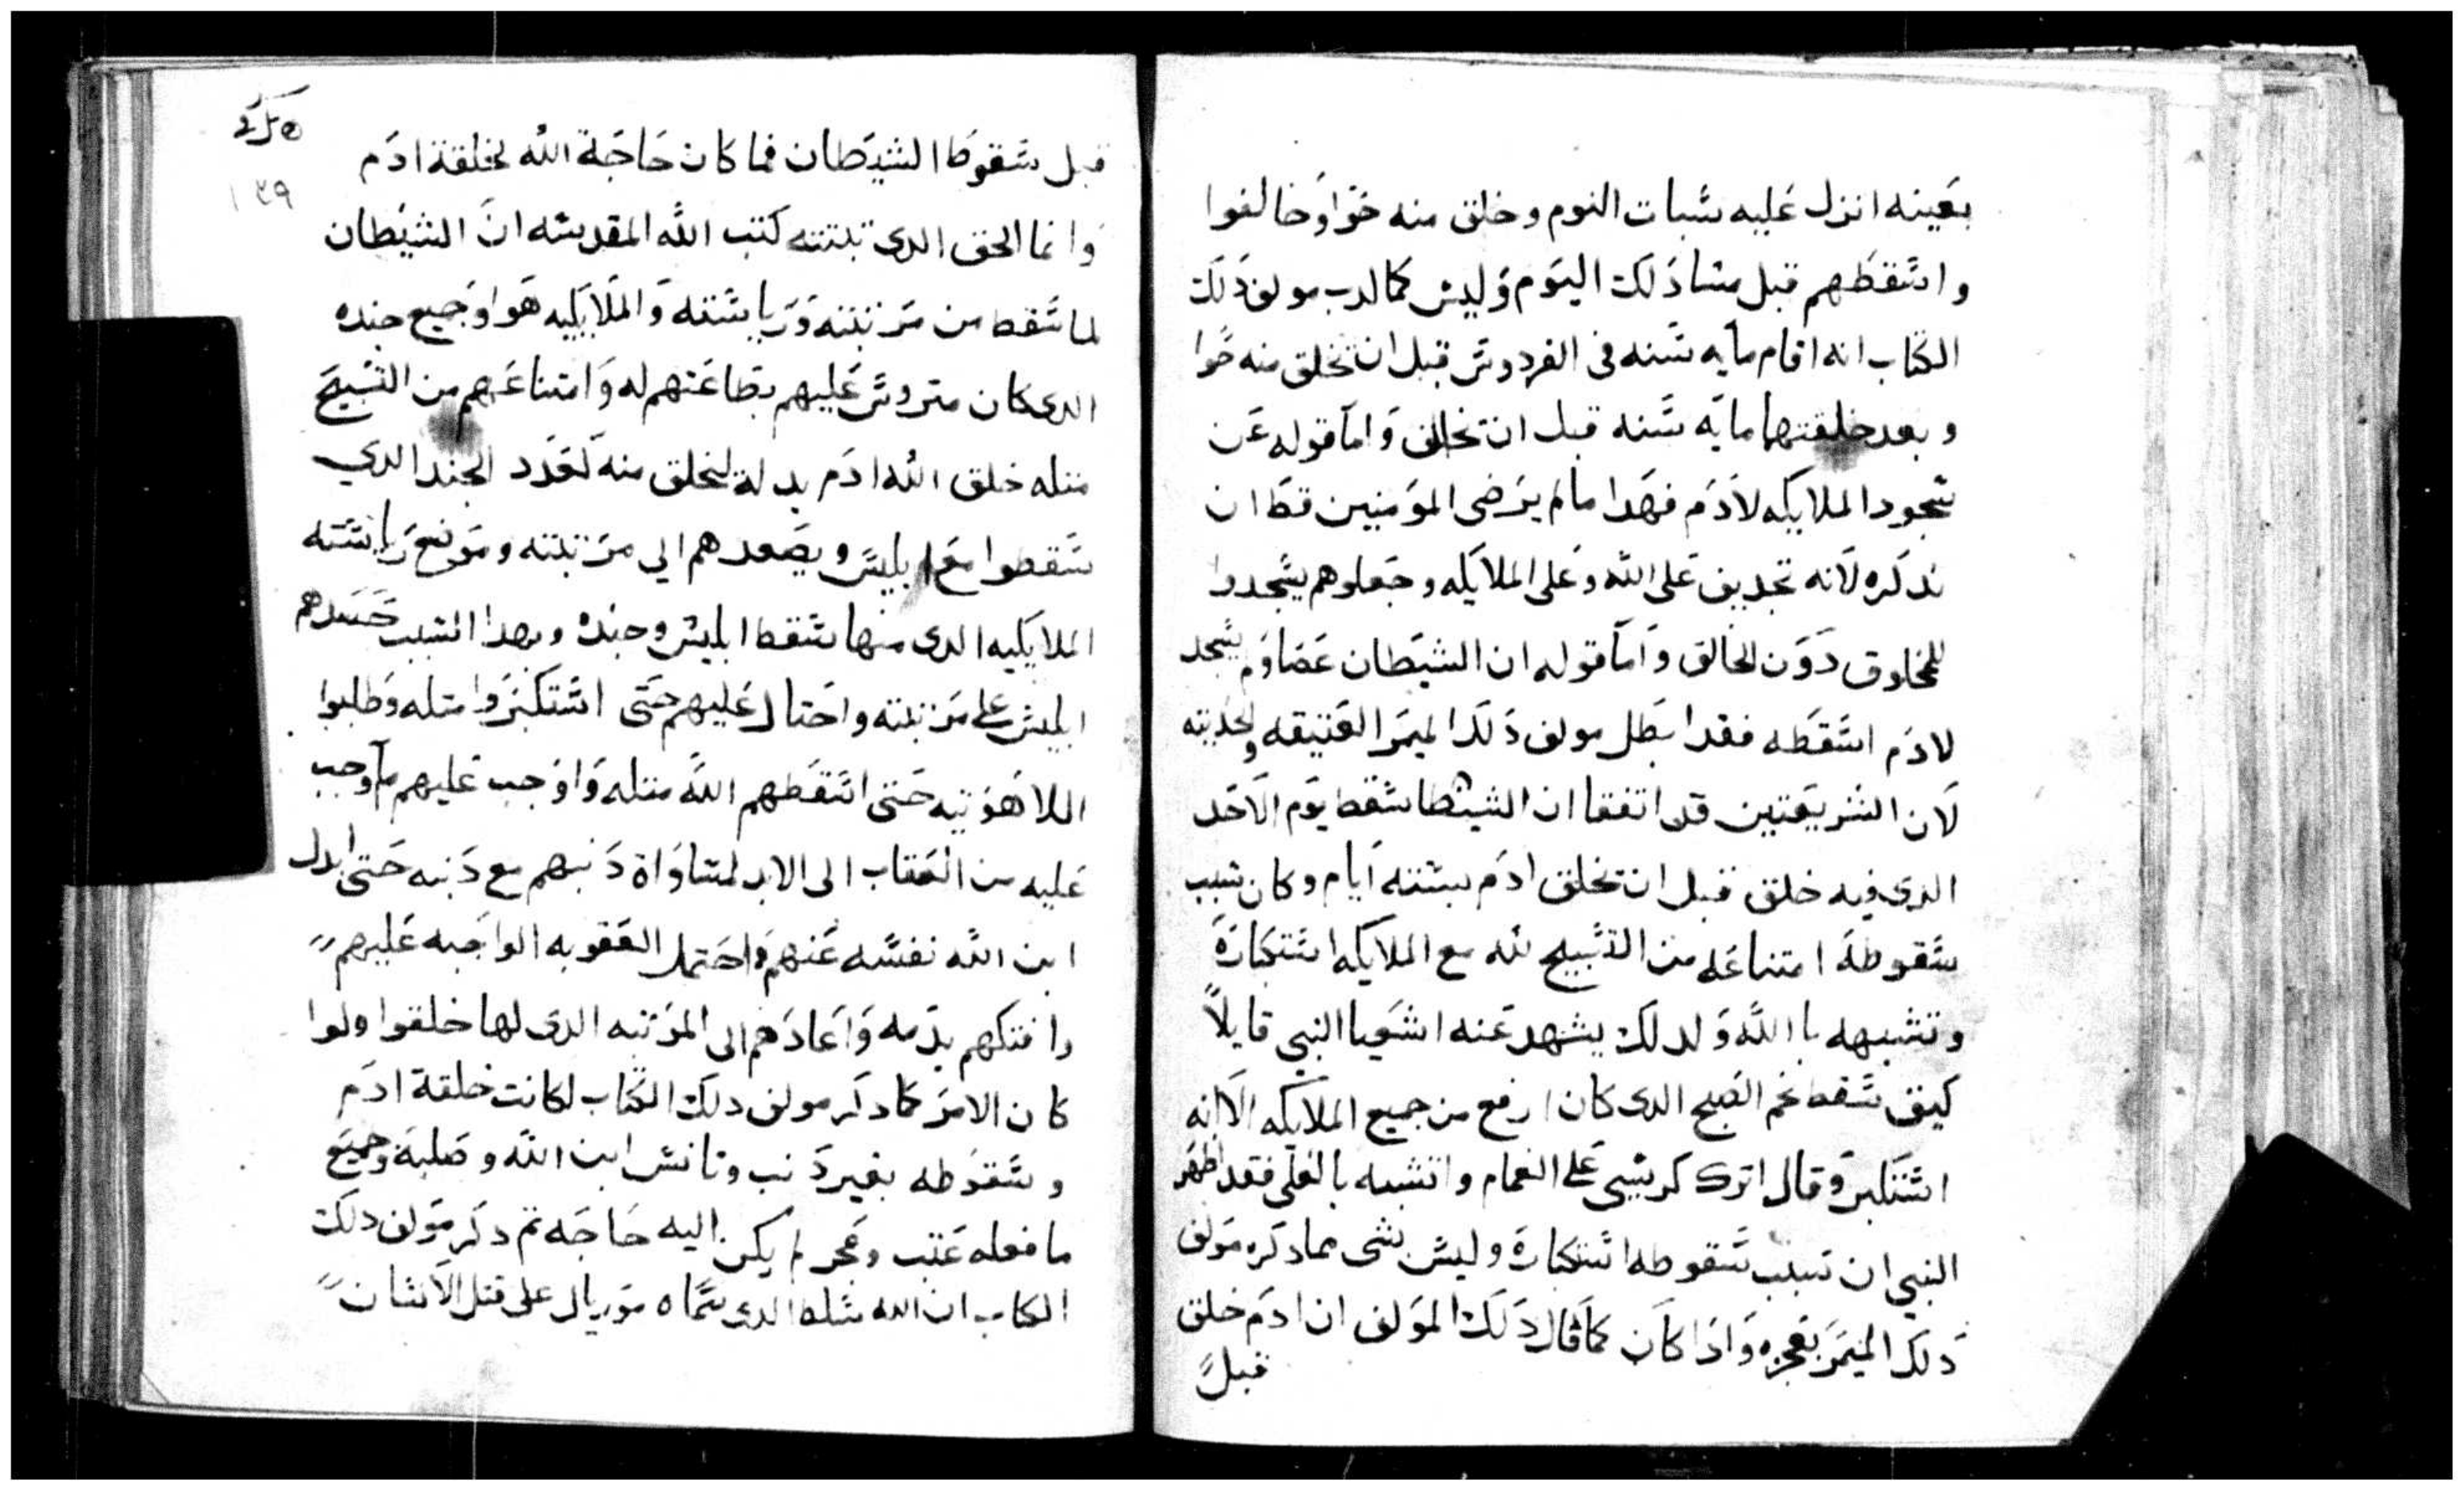 بعينه انزل عليه سبات النوم وخلق منه حوا وخالفوا
واسقطهم قبل مسا دلك اليوم وليس كما لدب مولف دلك
الكتاب انه اقام مايه سنه فى الفردوس قبل ان تخلق منه حوا
وبعد خلقتهما مايه سنه قبل ان تخالف واما قوله عن
سجود الملايكه لادم فهدا ما لم يرضى المومنين قط ان
ندكره لانه تجديف على الله وعلى الملايكه وجعلوهم يسجدوا
للمخلوق دون الخالق واما قوله ان الشيطان عصا ولم يسجد
لادم اسقطه فقد ابطل مولف دلك الميمر العتيقه والحديثه
لان الشريعتين قد اتفقا ان الشيطان سقط يوم الاحد
الدى فيه خلق قبل ان تخلق ادم بستة ايام وكان سبب
سقوطه امتناعه من التسبيح لله مع الملايكه استكباره
وتشبهه بالله ولدلك يشهد عنه اشعيا النبي قايلا
كيف سقط نجم الصبح الدى كان ارفع من جميع الملايكه الا انه
استكبر وقال اترك كرسيى على الغمام واتشبه بالعلى فقد اظهر
النبي ان سبب سقوطه استكباره وليس بشى مما دكره مولف
دلك الميمر بعجزه وادا كان كما قال دلك المولف ان ادم خلق
قبل
١٣٩
قبل سقوط الشيطان فما كان حاجة الله لخلقة ادم
وانما الحق الدى تبتته كتب الله المقدسه ان الشيطان
لما سقط من مرتبته ورياسته والملايكيه هو وجميع جنده
الدى كان متروس عليهم بطاعتهم له وامتناعهم من التسبيح
متله خلق الله ادم بدله لتخلق منه لعدد الجند الدي
سقطوا مع ابليس ويصعدهم الي مرتبته وموضع رياسته
الملايكيه الدى منها سقط ابليس وجنده وبهدا السبب حسدهم
ابليس على مرتبته واحتال عليهم حتى استكبروا متله وطلبوا
اللاهوتيه حتى اسقطهم الله متله واوجب عليهم ما وجب
عليه من العقاب الى الابد لمساواة دنبهم مع دنبه حتى ابدل
ابن الله نفسه عنهم واحتمل العقوبه الواجبه عليهم
وافتكهم بدمه واعادهم الى المرتبه الدى لها خلقوا ولوا
كان الامر كما دكر مولف دلك الكتاب لكانت خلقة ادم
وسقوطه بغير دنب وتانس ابن الله وصلبه وجميع
ما فعله عتب وعجز لم يكن اليه حاجه تم دكر مولف دلك
الكتاب ان الله سلط الدى سماه موريال على قتل الانسان